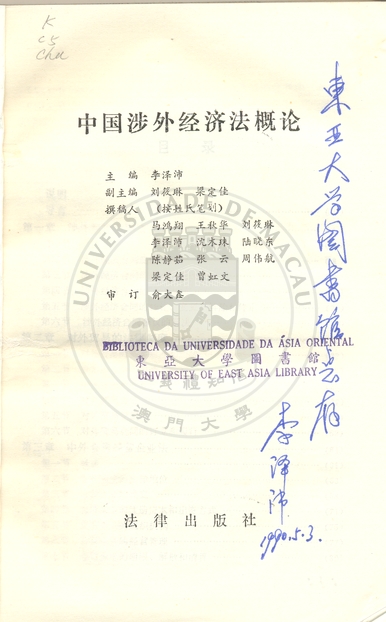 K
C5
Chu
中国涉外经济法概论
主 编 李泽沛
副主编 刘筱琳 梁定佳
撰稿人 (按姓氏笔划)
马鸿翔 王秋华 刘筱琳
李泽沛 沈木珠 陆晓东
陈静茹 张 云 周伟航
梁定佳 曾虹文
审 订 俞大鑫
UNIVERSIDADE DE MACAU
BIBLIOTECA DA UNIVERSIDADE DA ÁSIA ORIENTAL
東 亞 大 學 圖 書 館
UNIVERSITY OF EAST ASIA LIBRARY
澳門大學
法律出版社
東亚大学圖書館惠存
李泽沛
1990.5.3.